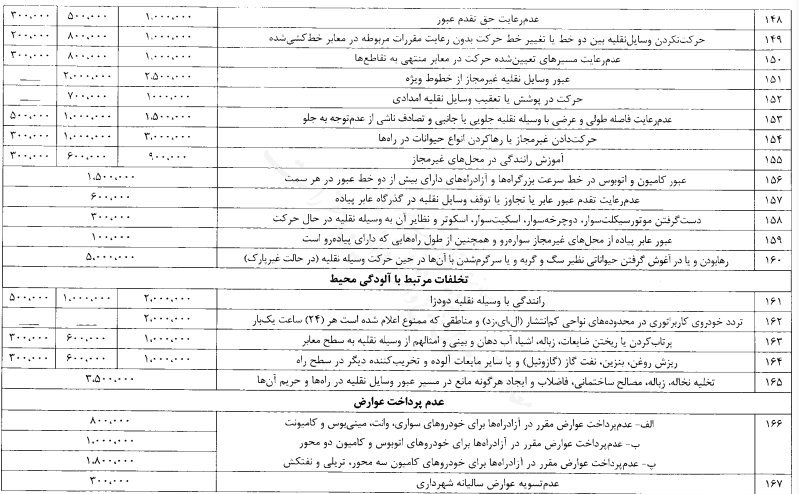 ۱۴۸ عدم‌رعایت حق تقدم عبور ۱.۰۰۰.۰۰۰ ۵۰۰.۰۰۰ ۳۰۰.۰۰۰
۱۴۹ حرکت‌نکردن وسایل‌نقلیه بین دو خط یا تغییر خط حرکت بدون رعایت مقررات مربوطه در معابر خط‌کشی‌شده ۱.۰۰۰.۰۰۰ ۸۰۰.۰۰۰ ۲۰۰.۰۰۰
۱۵۰ عدم‌رعایت مسیرهای تعیین‌شده حرکت در معابر منتهی به تقاطع‌ها ۱.۰۰۰.۰۰۰ ۸۰۰.۰۰۰ ۳۰۰.۰۰۰
۱۵۱ عبور وسایل نقلیه غیرمجاز از خطوط ویژه ۲.۵۰۰.۰۰۰ ۲.۰۰۰.۰۰۰ ـــ
۱۵۲ حرکت در پوشش یا تعقیب وسایل نقلیه امدادی ۱۰۰۰.۰۰۰ ۷۰۰.۰۰۰ ـــ
۱۵۳ عدم‌رعایت فاصله طولی و عرضی با وسیله نقلیه جلویی یا جانبی و تصادف ناشی از عدم‌توجه به جلو ۱.۵۰۰.۰۰۰ ۱.۰۰۰.۰۰۰ ۵۰۰.۰۰۰
۱۵۴ حرکت‌دادن غیرمجاز یا رهاکردن انواع حیوانات در راه‌ها ۳.۰۰۰.۰۰۰ ۱.۰۰۰.۰۰۰ ۳۰۰.۰۰۰
۱۵۵ آموزش رانندگی در محل‌های غیرمجاز ۹۰۰.۰۰۰ ۶۰۰.۰۰۰ ۳۰۰.۰۰۰
۱۵۶ عبور کامیون و اتوبوس در خط سرعت بزرگراه‌ها و آزادراه‌های دارای بیش از دو خط عبور در هر سمت ۱.۵۰۰.۰۰۰
۱۵۷ عدم‌رعایت تقدم عبور عابر یا تجاوز یا توقف وسایل نقلیه در گذرگاه عابر پیاده ۶۰۰.۰۰۰
۱۵۸ دست‌گرفتن موتورسیکلت‌سوار، دوچرخه‌سوار، اسکیت‌سوار، اسکوتر و نظایر آن به وسیله نقلیه در حال حرکت ۳۰۰.۰۰۰
۱۵۹ عبور عابر پیاده از محل‌های غیرمجاز سواره‌رو و همچنین از طول راه‌هایی که دارای پیاده‌رو است ۱۰۰.۰۰۰
۱۶۰ رهابودن و یا در آغوش گرفتن حیواناتی نظیر سگ و گربه و یا سرگرم‌شدن با آن‌ها در حین حرکت وسیله نقلیه (در حالت غیرپارک) ۵.۰۰۰.۰۰۰
تخلفات مرتبط با آلودگی محیط
۱۶۱ رانندگی با وسیله نقلیه دودزا ۲.۰۰۰.۰۰۰ ۱.۰۰۰.۰۰۰ ۵۰۰.۰۰۰
۱۶۲ تردد خودروی کاربراتوری در محدوده‌های نواحی کم‌انتشار (ال.ای.زد) و مناطقی که ممنوع اعلام شده است هر (۲۴) ساعت یک‌بار ۲.۰۰۰.۰۰۰ ـــ ـــ
۱۶۳ پرتاب‌کردن یا ریختن ضایعات، زباله، اشیا، آب دهان و بینی و امثالهم از وسیله نقلیه به سطح معابر ۱.۰۰۰.۰۰۰ ۶۰۰.۰۰۰ ۳۰۰.۰۰۰
۱۶۴ ریزش روغن، بنزین، نفت گاز (گازوئیل) و یا سایر مایعات آلوده و تخریب‌کننده دیگر در سطح راه ۱.۰۰۰.۰۰۰ ۶۰۰.۰۰۰ ۳۰۰.۰۰۰
۱۶۵ تخلیه نخاله، زباله، مصالح ساختمانی، فاضلاب و ایجاد هرگونه مانع در مسیر عبور وسایل نقلیه در راه‌ها و حریم آن‌ها ۳.۵۰۰.۰۰۰
عدم پرداخت عوارض
۱۶۶ الف- عدم‌پرداخت عوارض مقرر در آزادراه‌ها برای خودروهای سواری، وانت، مینی‌بوس و کامیونت ۸۰۰.۰۰۰
ب- عدم‌پرداخت عوارض مقرر در آزادراه‌ها برای خودروهای اتوبوس و کامیون دو محور ۱.۰۰۰.۰۰۰
پ- عدم‌پرداخت عوارض مقرر در آزادراه‌ها برای خودروهای کامیون سه محور، تریلی و نفتکش ۱.۸۰۰.۰۰۰
۱۶۷ عدم‌تسویه عوارض سالیانه شهرداری ۳۰۰.۰۰۰